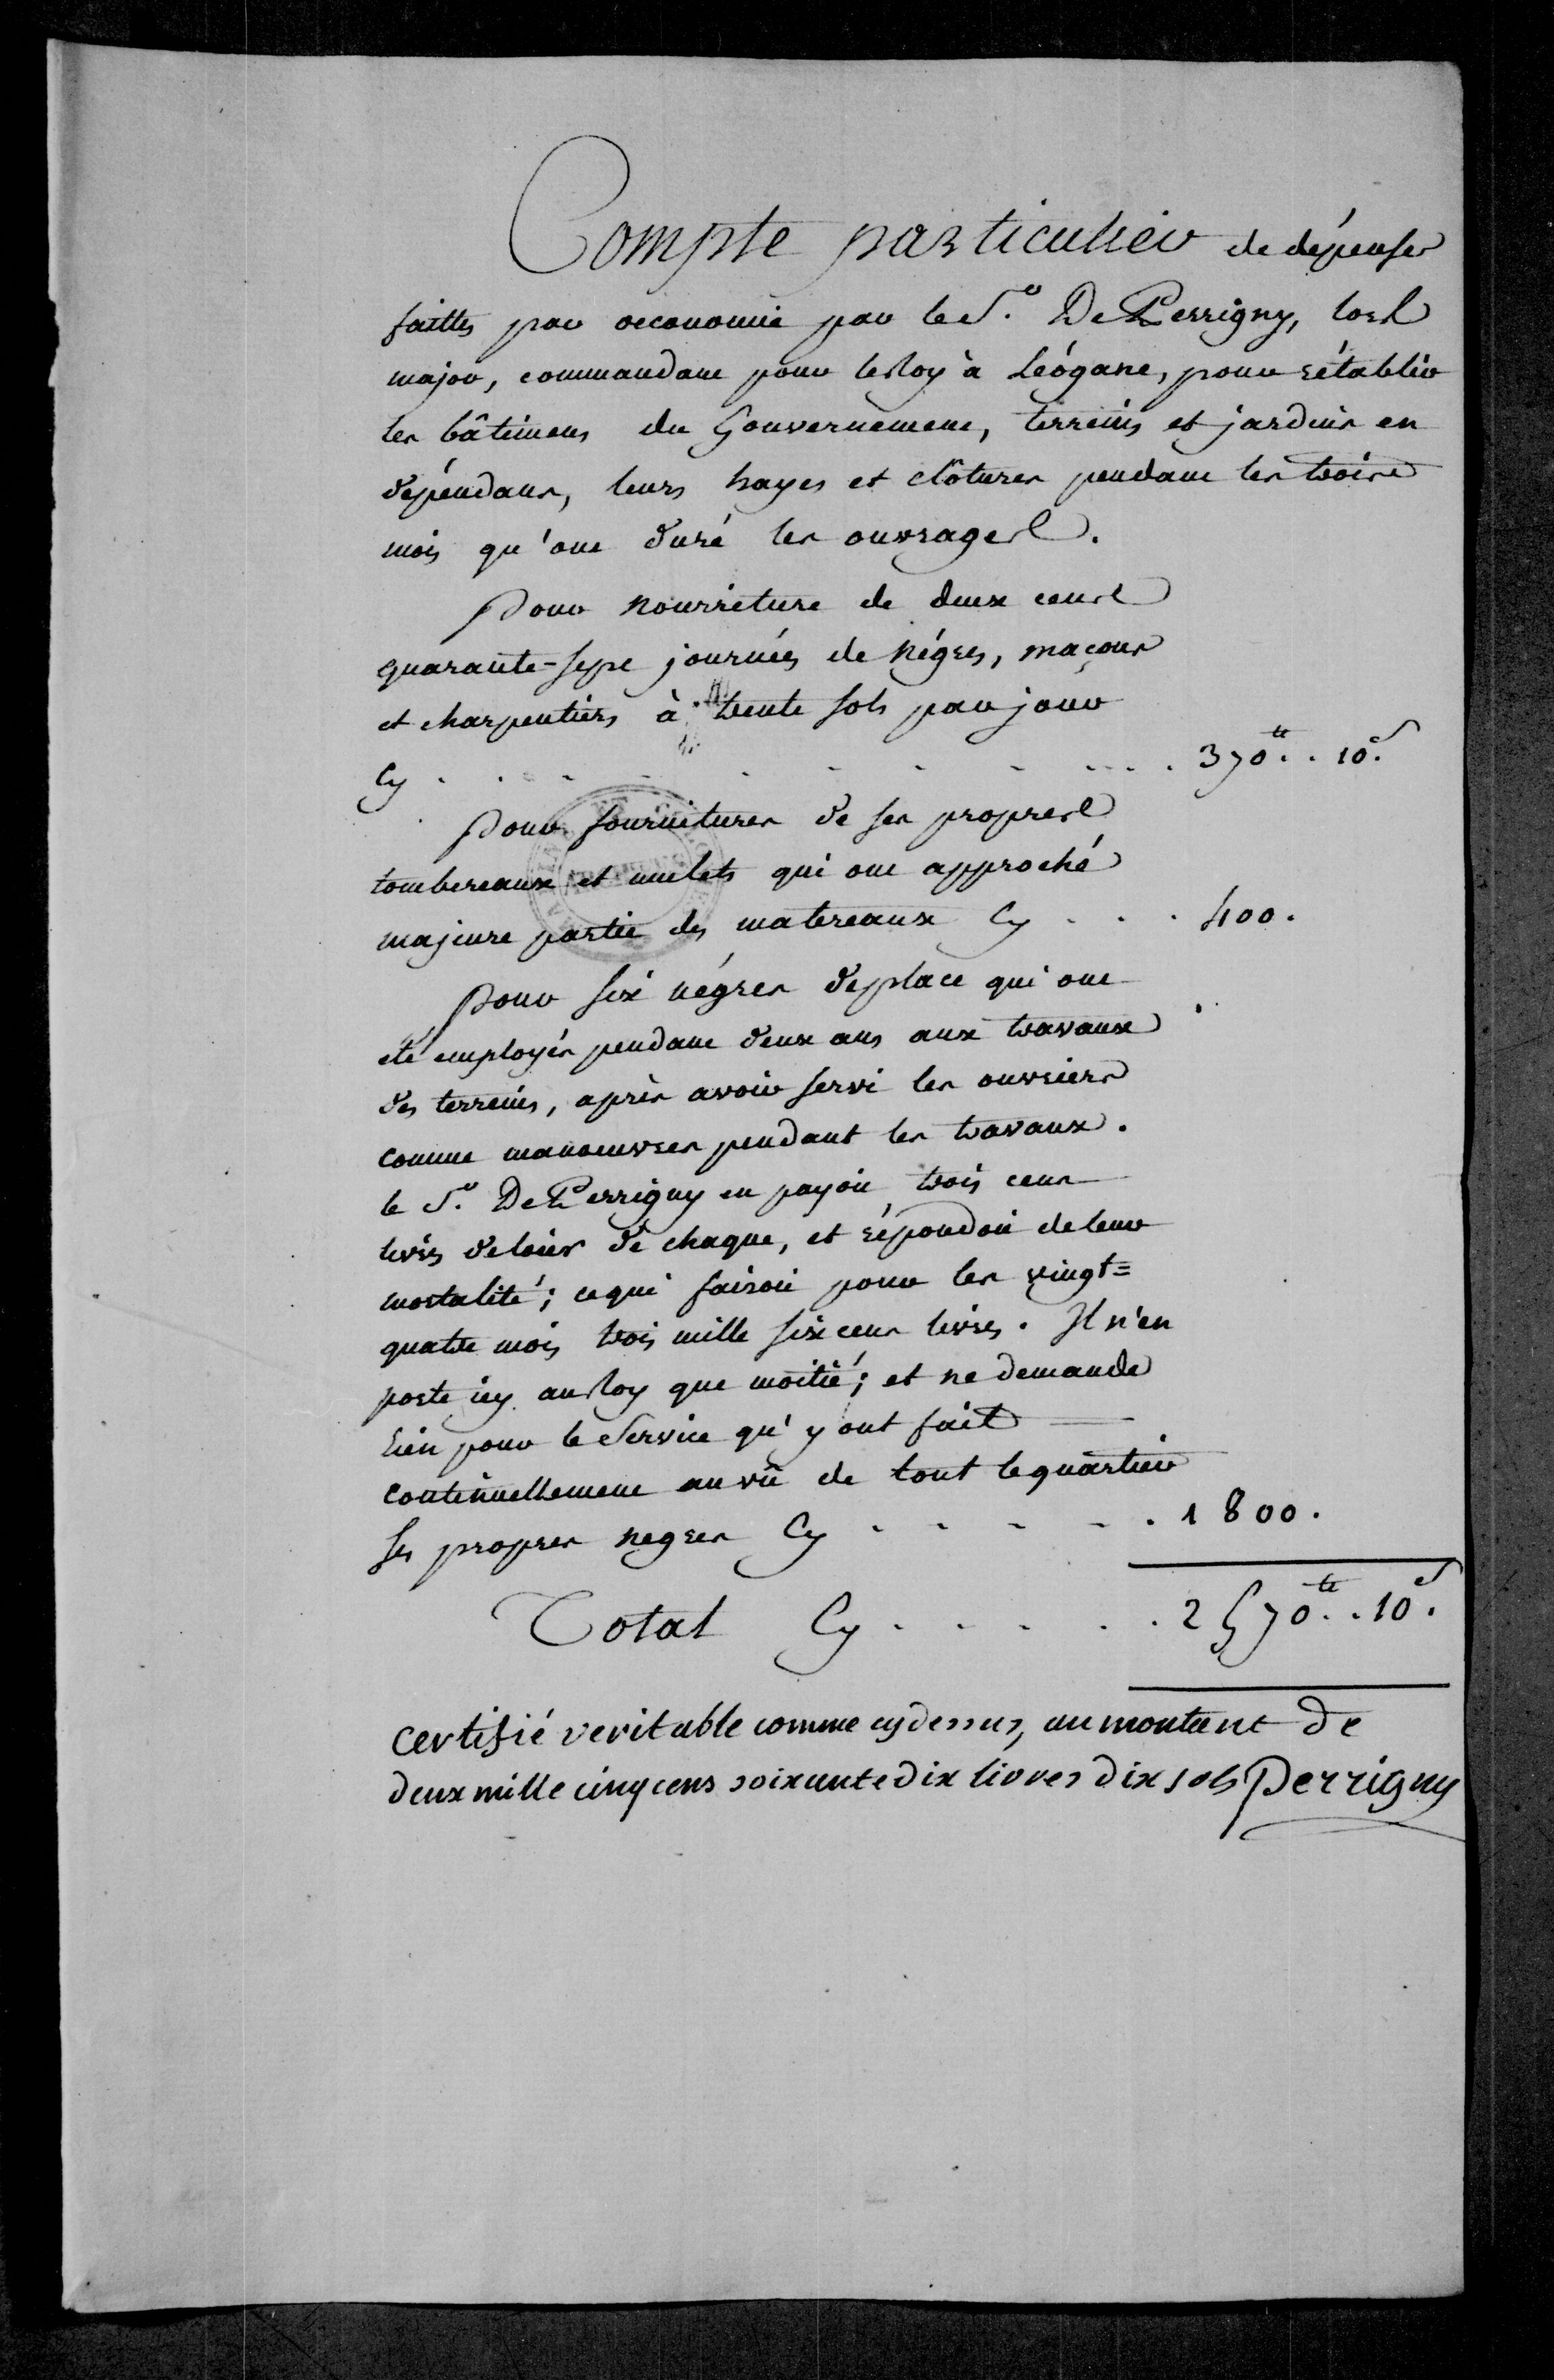 Compte particulier de dépenses
faittes par oeconomie par le Sr. De Perrigny, lors
major, commandant pour le Roy à Léogane, pour rétablir
les bâtimens du Gouvernement, terreins et jardins en
dépendans, leurs hayes et clôtures pendant les trois
mois qu'ont duré les ouvrages.
Pour nourriture de deux cens
quarante-sept journées de Négres, maçons
et charpentiers à trente sols par jour
Cy . . . . . . . . . 370tt. . 10s.
Pour fournitures de ses propres
tombereaux et mulets qui ont approché
majeure partie des matereaux Cy . . . 400.
Pour six négres de place qui ont
été employés pendant deux ans aux travaux
des terreins, après avoir servi les ouvriers
comme manoeuvres pendant les travaux.
le Sr. De Perrigny en payoit trois cens
livres de loier de chaque, et répondoit de leur
mortalité; ce qui faisoit pour les vingt=
quatre mois trois mille six cens livres. Il n'en
porte icy au Roy que moitié; et ne demande
rien pour le Service qu'y ont fait
continuellement au vû de tout le quartier
ses propres negres Cy . . . . . 1800.
Total Cy . . . . . 2570tt. . 10s.
certifié veritable comme cy dessus, au montant de
deux mille cinq cens soixante dix livres dix sols Perrigny